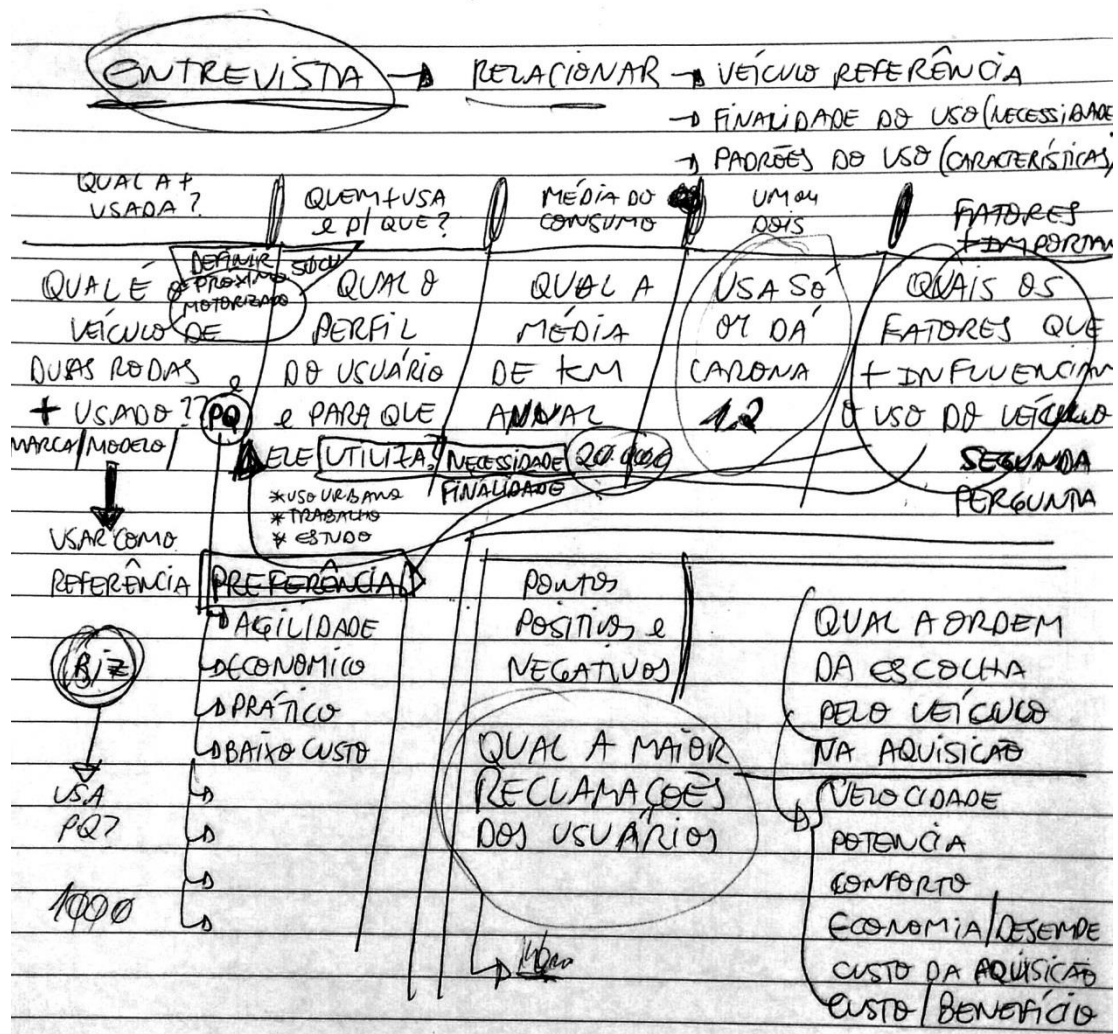 ENTREVISTA → RELACIONAR → VEÍCULO REFERÊNCIA
→ FINALIDADE DO USO (NECESSIDADE
→ PADRÕES DO USO (CARACTERÍSTICAS)
QUAL A +
USADA?
QUEM + USA
e P/ QUE?
MÉDIA DO
CONSUMO
UM ou
DOIS
FATORES
+ IMPORTAN
DEFINIR
PROXIMO
MOTORIZADO
QUAL É O
VEÍCULO DE
DUAS RODAS e
+ USADO?? PQ
MARCA/MODELO/
QUAL O
PERFIL
DO USUÁRIO
e PARA QUE
ELE UTILIZA?
* USO URBANO
* TRABALHO
* ESTUDO
NECESSIDADE
FINALIDADE
QUAL A
MÉDIA
DE KM
ANUAL
20.000
USA SÓ
OU DÁ
CARONA
1.2
QUAIS OS
FATORES QUE
+ INFLUENCIAM
O USO DO VEÍCULO
SEGUNDA
PERGUNTA
USAR COMO
REFERÊNCIA
BIZ
USA
PQ?
1000
PREFERÊNCIA
AGILIDADE
ECONOMICO
PRÁTICO
BAIXO CUSTO
PONTOS
POSITIVOS e
NEGATIVOS
QUAL A MAIOR
RECLAMAÇÕES
DOS USUÁRIOS
QUAL A ORDEM
DA ESCOLHA
PELO VEÍCULO
NA AQUISICÃO
VELOCIDADE
POTENCIA
CONFORTO
ECONOMIA/DESEMPE
CUSTO DA AQUISICÃO
CUSTO/BENEFÍCIO